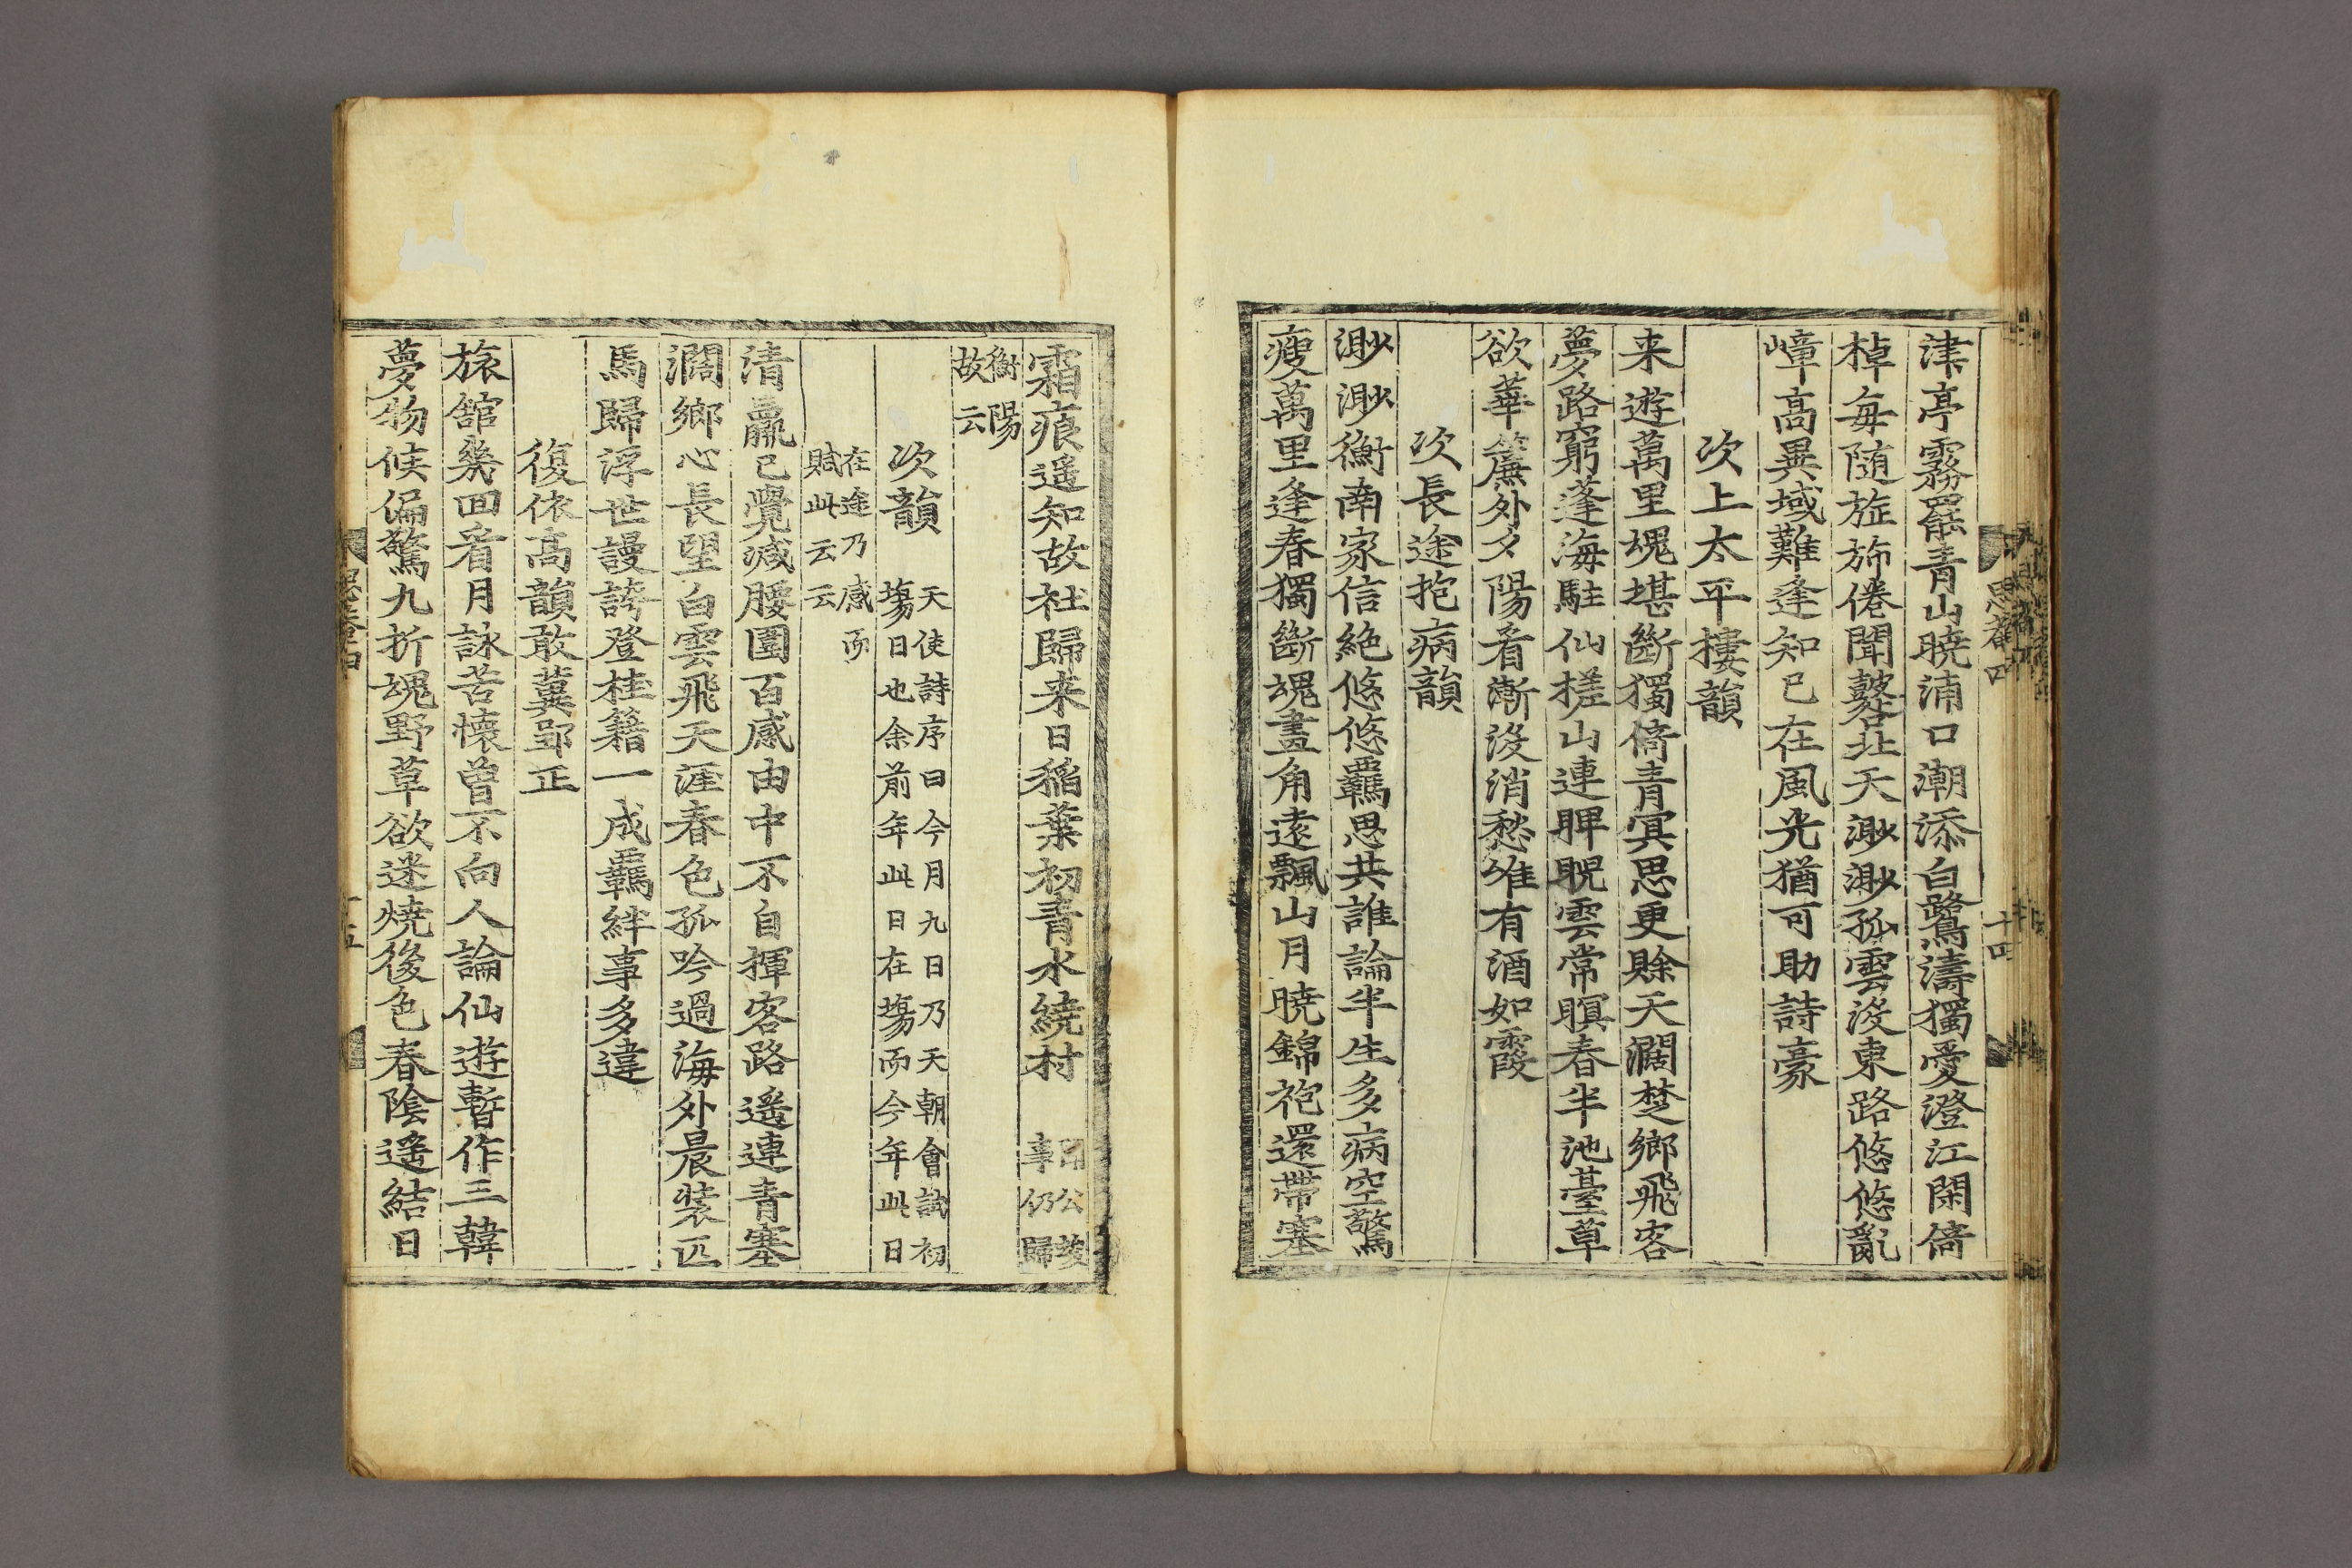 津亭霧罷青山曉浦口潮添白鷺濤獨愛澄江閑倚
棹每随旌斾倦聞鼛北天渺渺孤雲没東路悠悠亂
嶂高異域難逢知己在風光猶可助詩豪
次上太平樓韻
来遊萬里塊堪斷獨倚青冥思更賖天濶楚鄉飛客
夢路窮蓬海駐仙槎山連睥睨雲常暝春半池臺草
欲華簾外夕陽看漸没消愁唯有酒如霞
次長途抱病韻
渺渺衡南家信絶悠悠羈思共誰論半生多病空驚
瘦萬里逢春獨斷塊畫角遠飄山月曉錦袍還帶塞
思者四
十四
霜痕遥知故社歸来日稲葉初青水繞村
公故
事仍歸
衡陽
故云
次韻
天使詩序曰今月九日乃天朝會試初
塲日也余前年此日在塲而今年此日
在途乃感而
賦此云云
清羸已覺減腰圍百感由中不自揮客路遥連青塞
濶鄉心長望白雲飛天涯春色孤吟過海外晨裝匹
馬歸浮世謾誇登桂籍一成羈絆事多違
復依高韻敢冀郢正
旅舘幾回看月詠苦懐曾不向人論仙遊暫作三韓
夢物候偏驚九折塊野草欲迷燒後色春陰遥結日